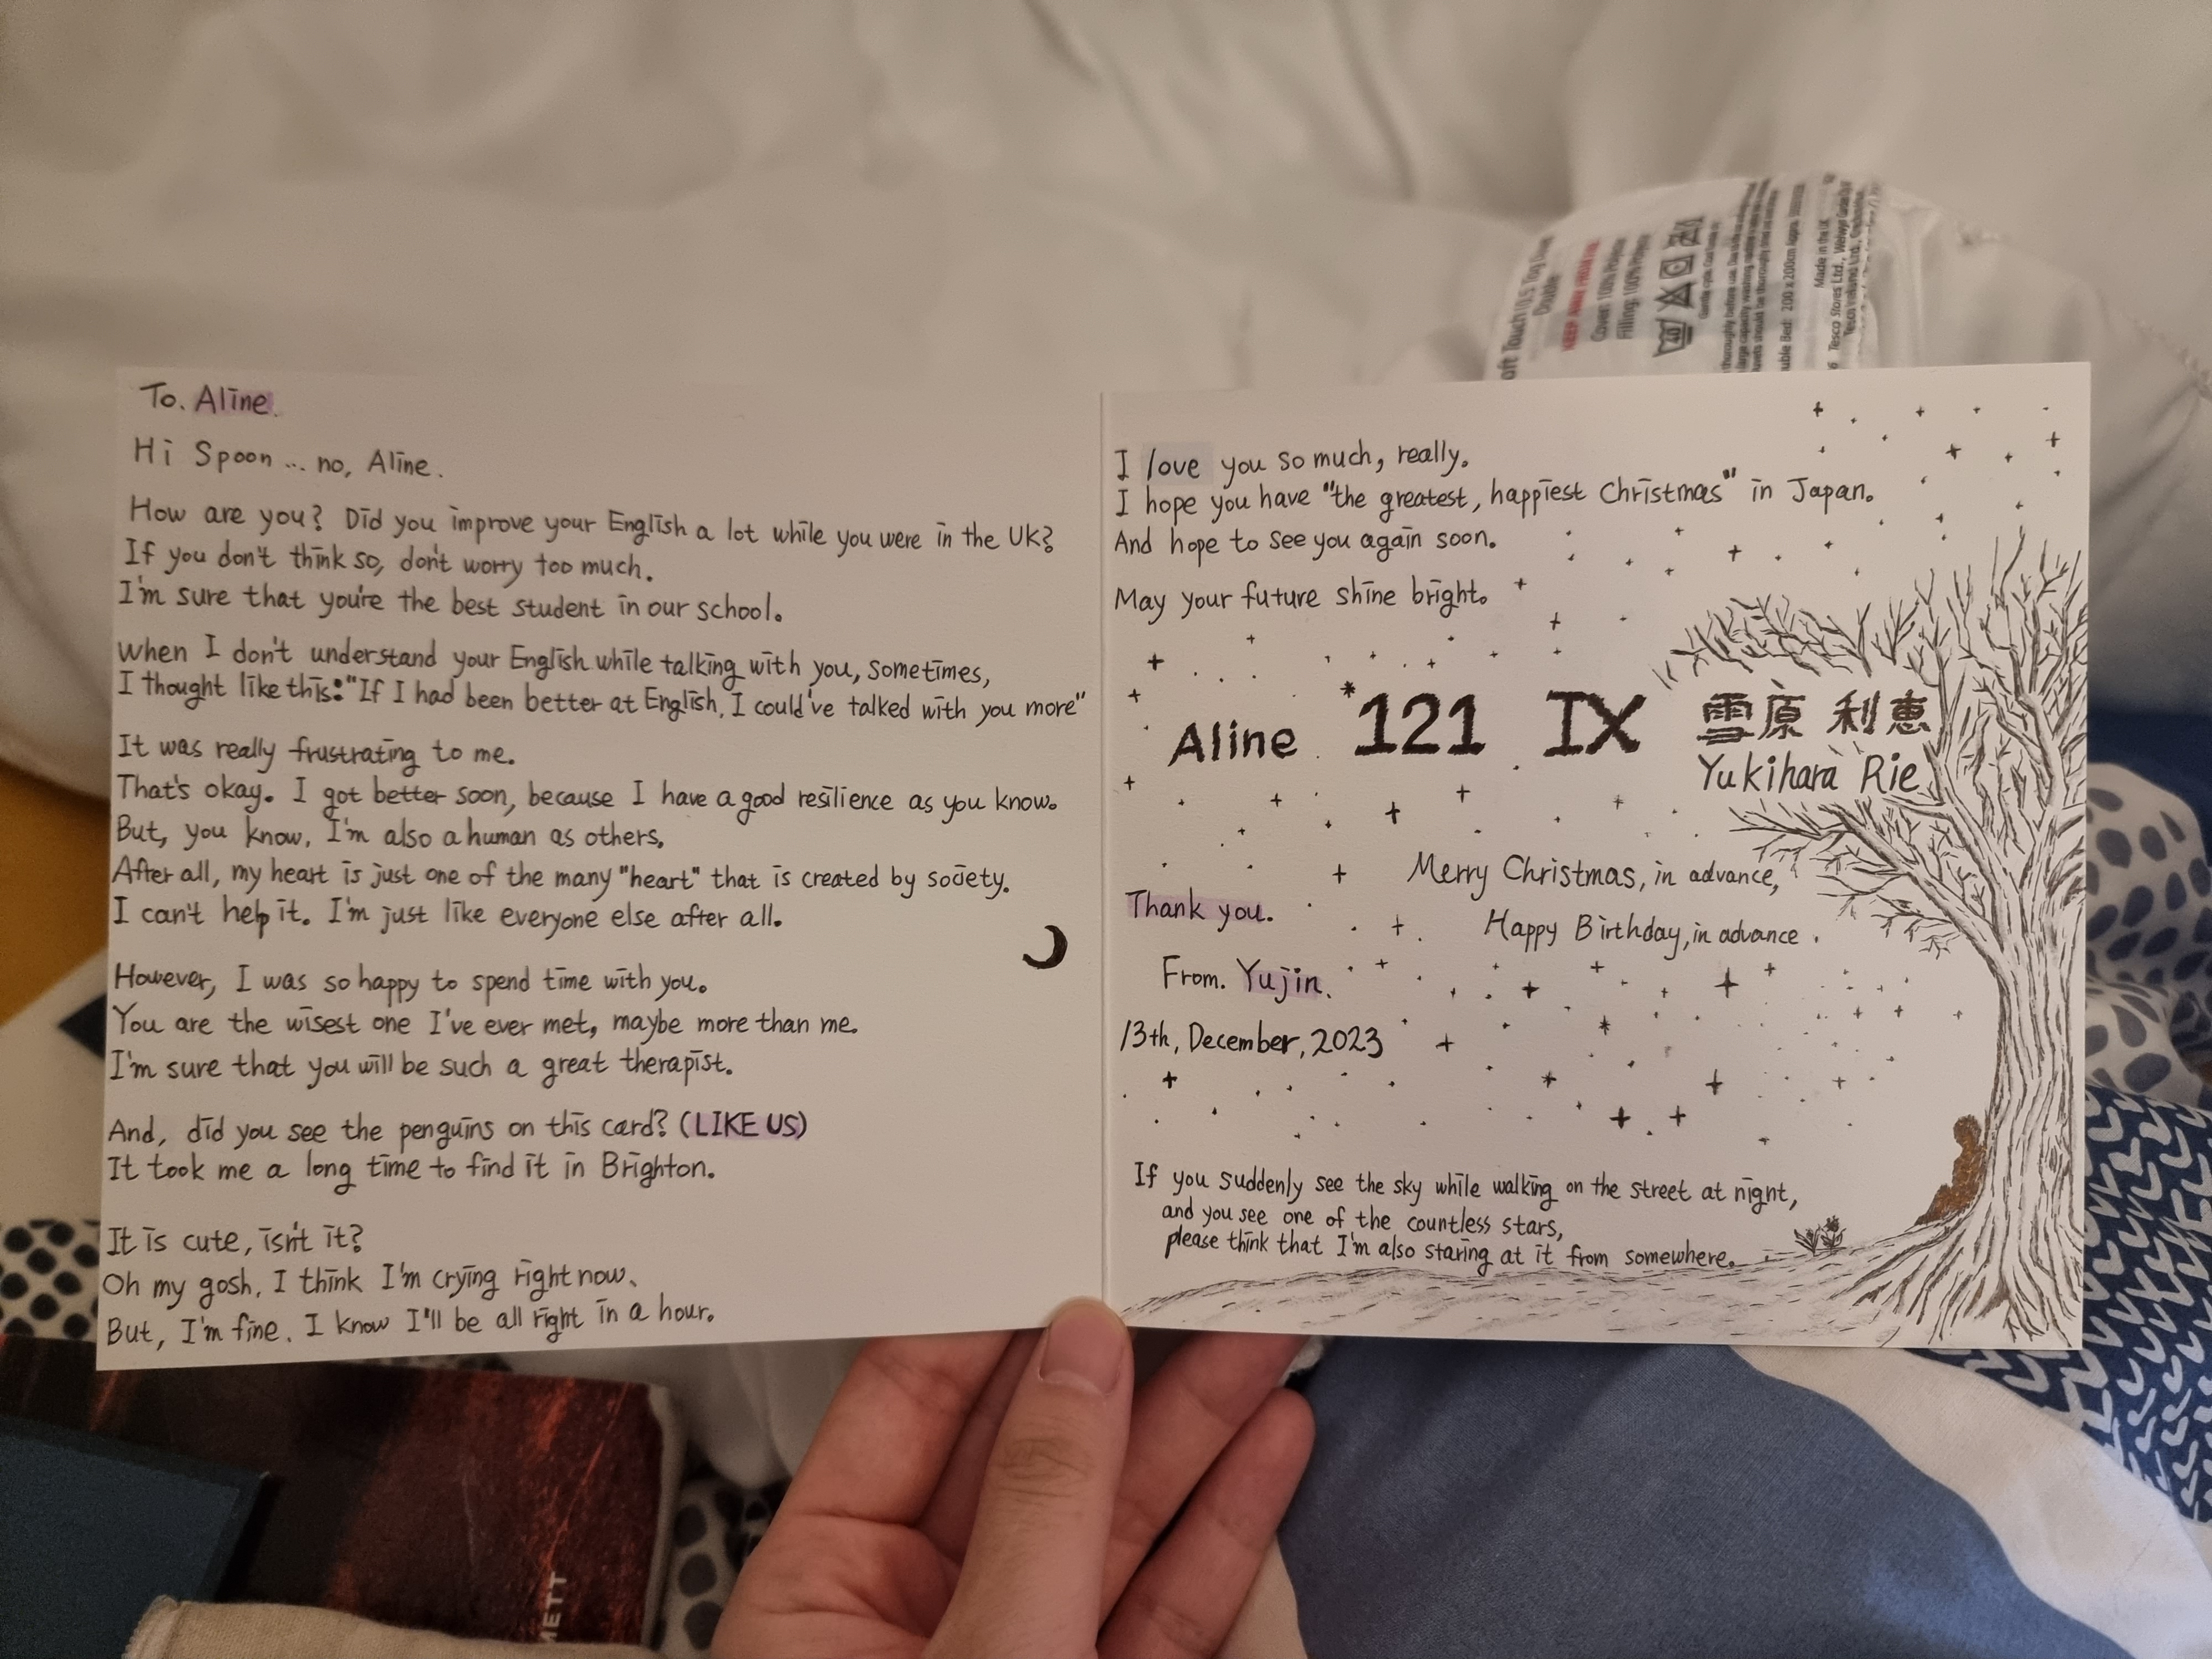 To. Aline.
Hi Spoon ... no, Aline.
How are you? Did you improve your English a lot while you were in the UK?
If you don't think so, don't worry too much.
I'm sure that you're the best student in our school.
When I don't understand your English while talking with you, sometimes,
I thought like this: "If I had been better at English, I could've talked with you more"
It was really frustrating to me.
That's okay. I got better soon, because I have a good resilience as you know.
But, you know, I'm also a human as others,
After all, my heart is just one of the many "heart" that is created by society.
I can't help it. I'm just like everyone else after all.
However, I was so happy to spend time with you.
You are the wisest one I've ever met, maybe more than me.
I'm sure that you will be such a great therapist.
And, did you see the penguins on this card? (LIKE US)
It took me a long time to find it in Brighton.
It is cute, isn't it?
Oh my gosh, I think I'm crying right now.
But, I'm fine. I know I'll be all right in a hour.
I love you so much, really.
I hope you have "the greatest, happiest Christmas" in Japan.
And hope to see you again soon.
May your future shine bright.
Aline 121 IX 雪原 利恵
Yukihara Rie
Merry Christmas, in advance,
Thank you.
Happy Birthday, in advance.
From. Yujin.
13th, December, 2023
If you suddenly see the sky while walking on the street at night,
and you see one of the countless stars,
please think that I'm also staring at it from somewhere.
KEEP AWAY FROM FIRE
Made in the UK
Tesco Stores Ltd.,
METT